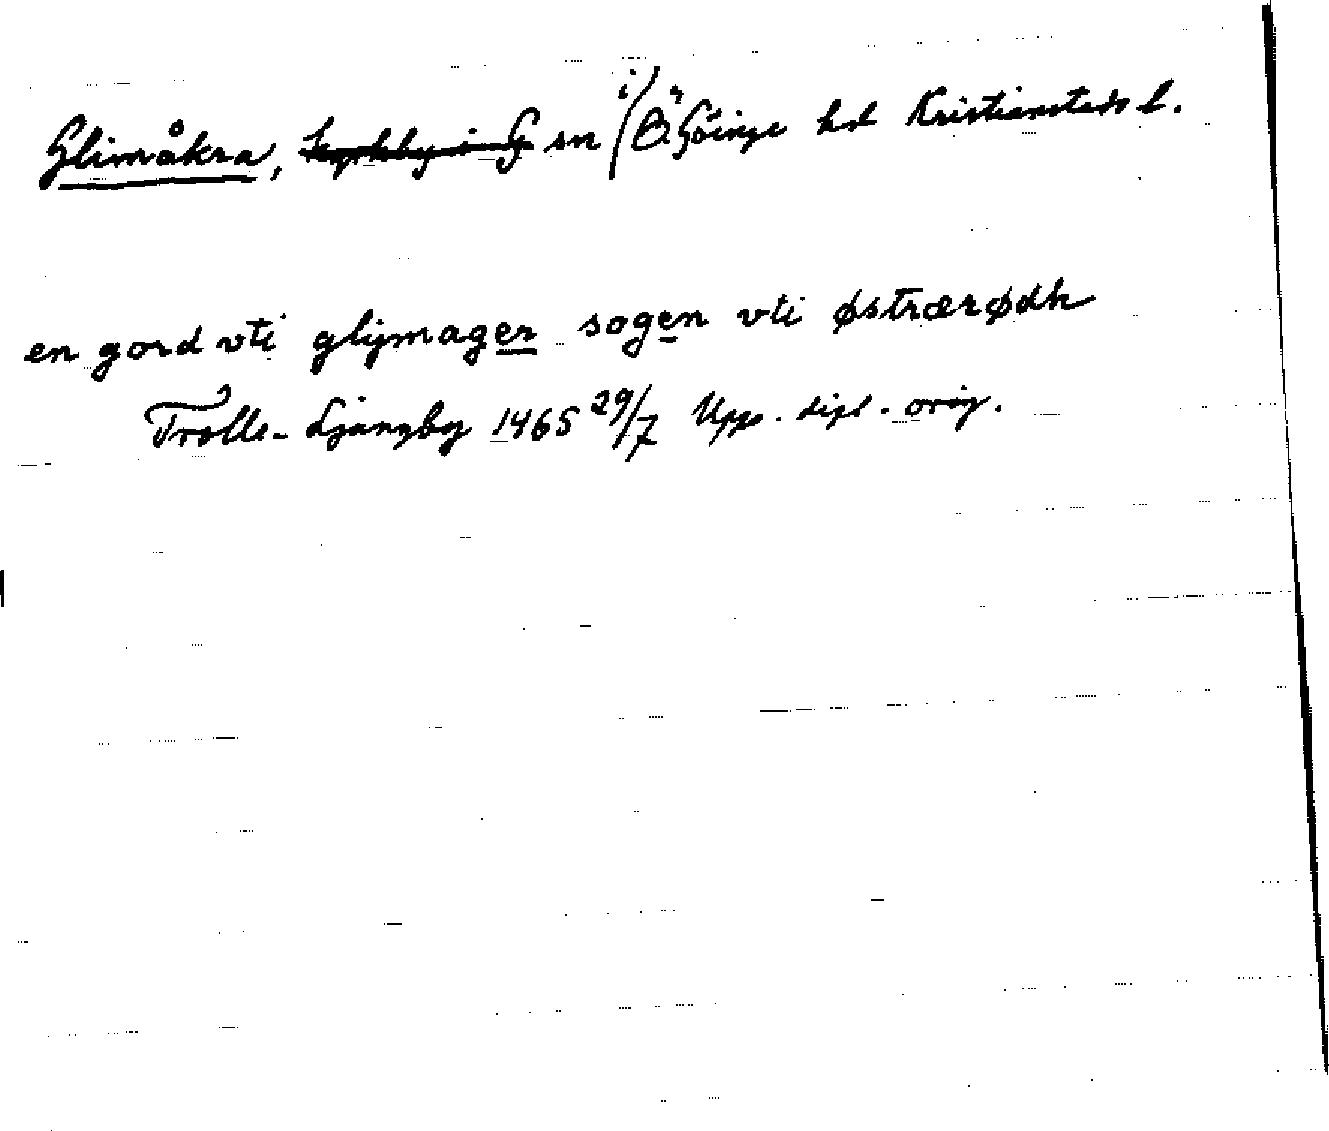 Glimåkra, kyrkby i G sn i Ö. Göinge hd Kristianstads l.
en gord vti glijmager sogen vti østrærødh
Trolle-Ljungby 1465 29/7 Upps. dipl. orig.